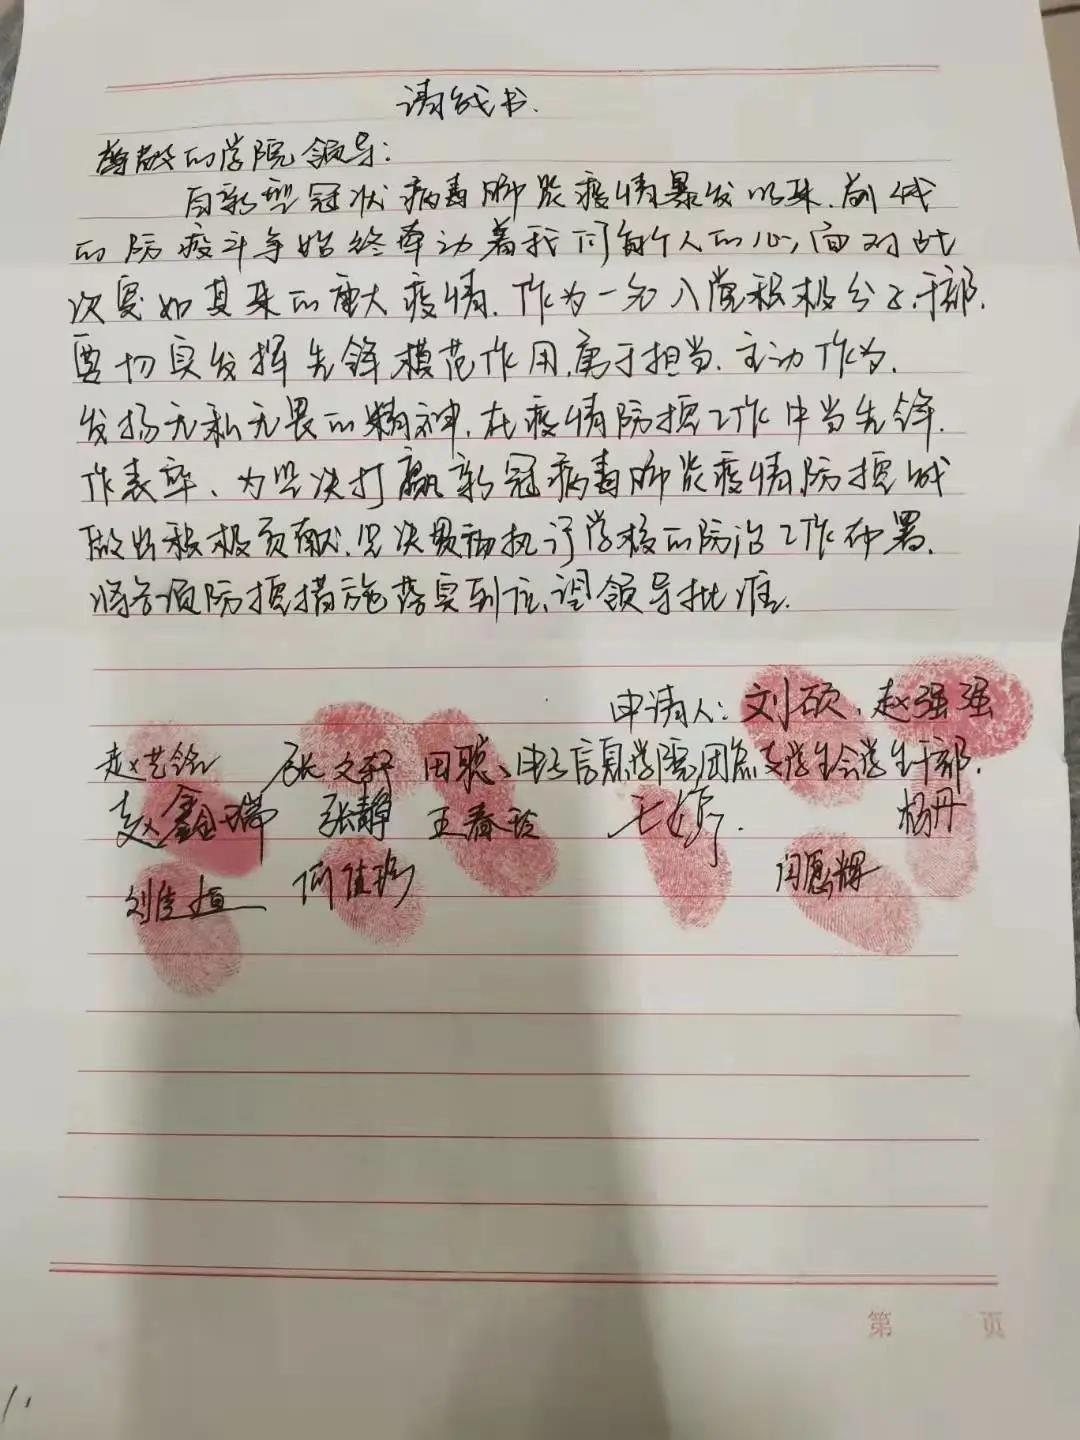 请战书.
尊敬的学院领导:
自新型冠状病毒肺炎疫情暴发以来.前线
的防疫斗争始终牵动着我们每个人的心,面对此
次突如其来的重大疫情.作为一名入党积极分子.干部.
要切实发挥先锋模范作用.勇于担当.主动作为.
发扬无私无畏的精神.在疫情防控工作中当先锋.
作表率、为坚决打赢新冠病毒肺炎疫情防控战
做出积极贡献.坚决贯彻执行学校的防治工作布署.
将各项防控措施落实到位、望领导批准.
申请人: 刘硕、赵强强
赵艺铭 张文轩 田聪、电子信息学院团总支学生会学生干部.
赵鑫瑞 张静 王春玲 杨丹
刘佳 何佳 闫恩辉
第 页